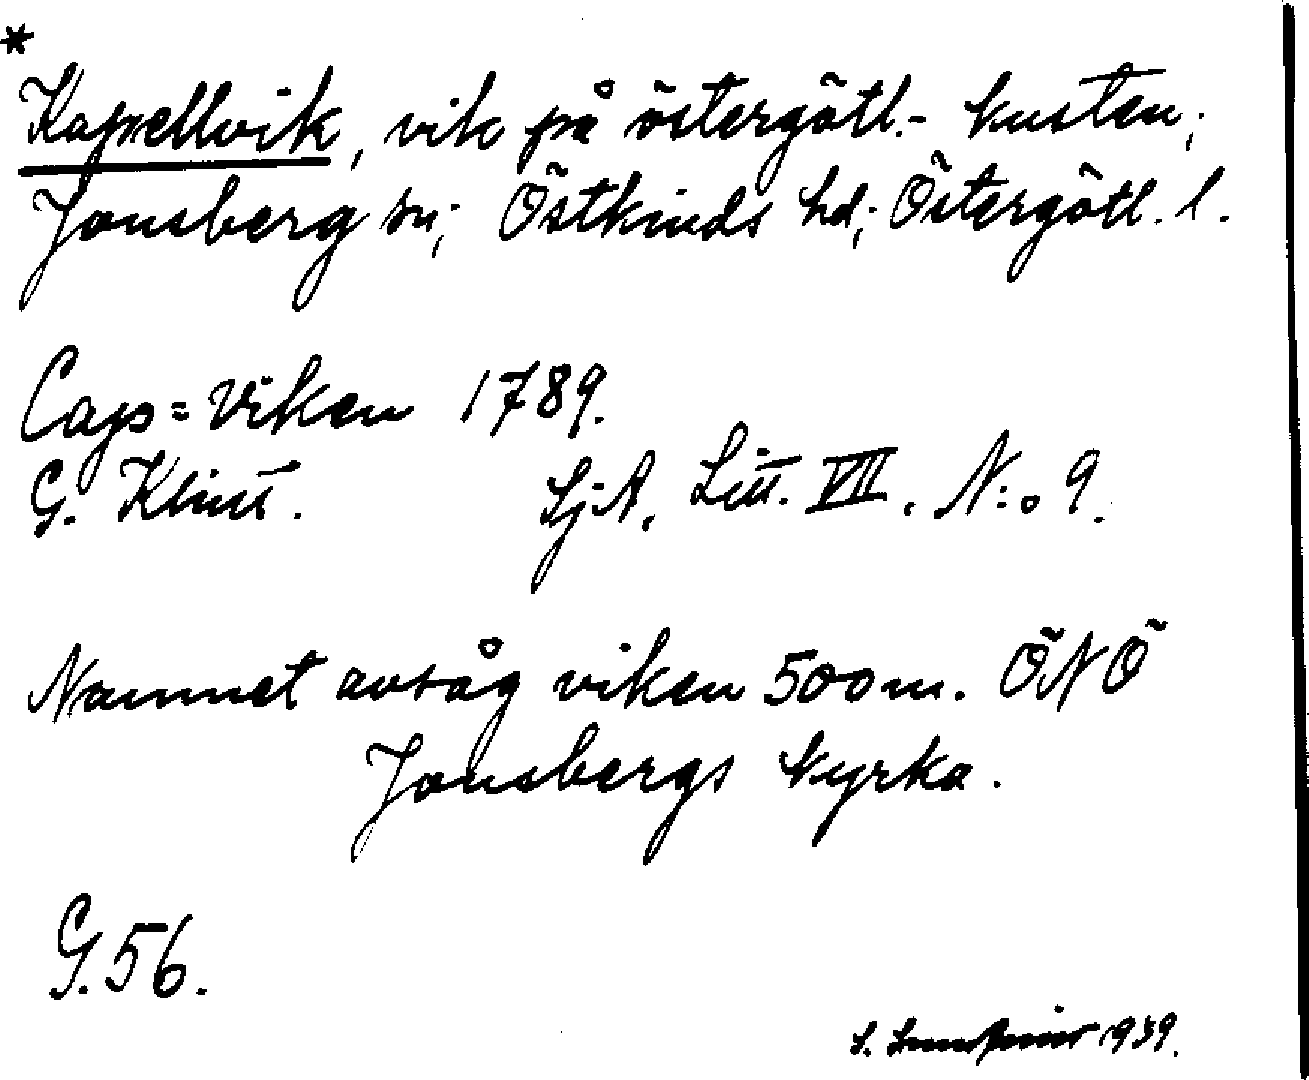 *
Kapellvik, vik på östergötl.- kusten;
Jonsberg sn; Östkinds hd; Östergötl. l.
Cap=Viken 1789.
G. Klint. SjA, Litt. VII. N:o 9.
Namnet avsåg viken 500 m. ÖNÖ
Jonsbergs kyrka.
G. 56.
S. 1939.